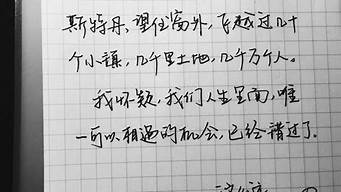 斯特丹，望住窗外，飞越过几十
个小镇，几千里土地，几千万个人。
我怀疑，我们人生里面，唯
一可以相遇的机会，已经错过了。